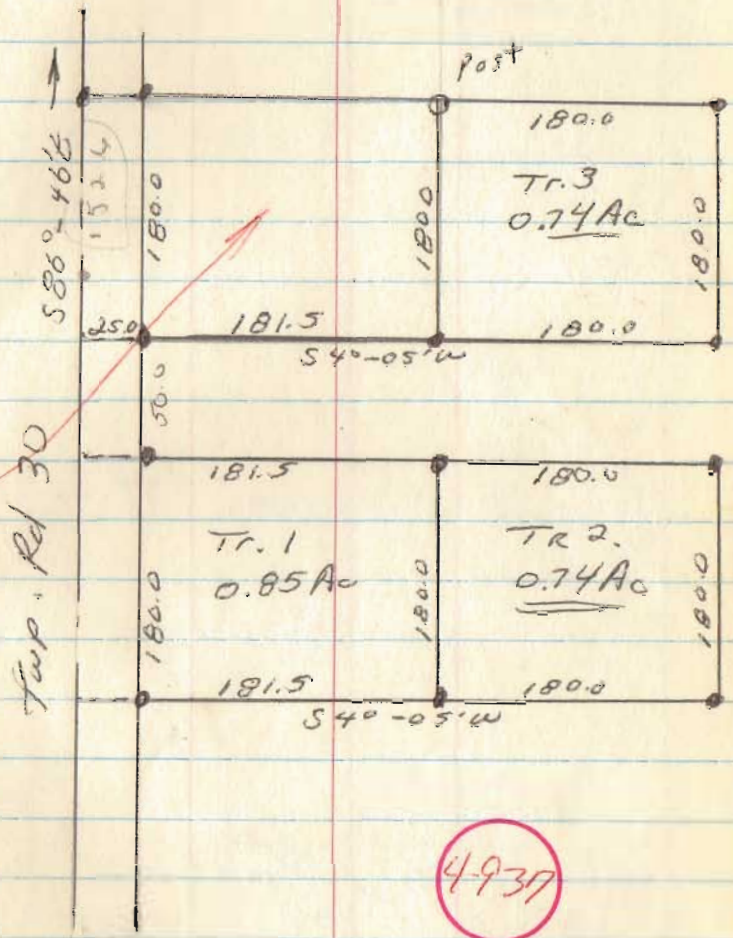 Post
S86°-46'E
1524
180.0
180.0
180.0
Tr. 3
0.74 Ac
180.0
25.0
181.5
180.0
S 4°-05' W
50.0
Twp. Rd 30
181.5
180.0
Tr. 1
0.85 Ac
TR 2.
0.74 Ac
180.0
180.0
180.0
181.5
180.0
S 4°-05' W